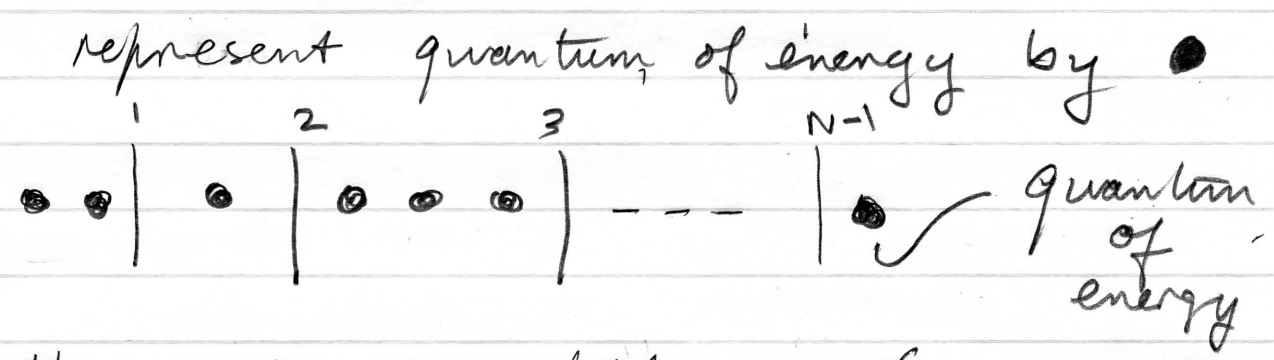 represent quantum of energy by ●
1 2 3 N-1
quantum
of
energy